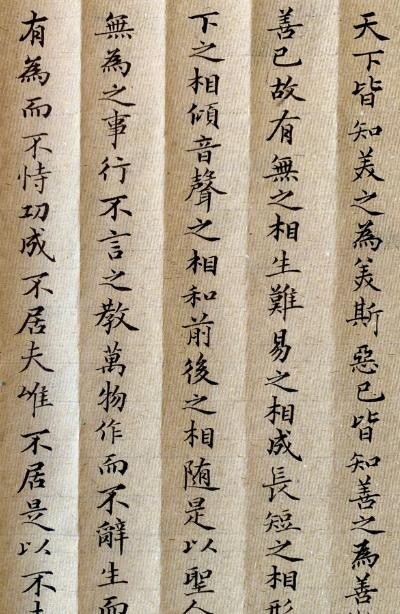 天下皆知美之為美斯惡已皆知善之為善
善已故有無之相生難易之相成長短之相形
下之相傾音聲之相和前後之相随是以聖人
無為之事行不言之教萬物作而不辭生而
有為而不恃功成不居夫唯不居是以不